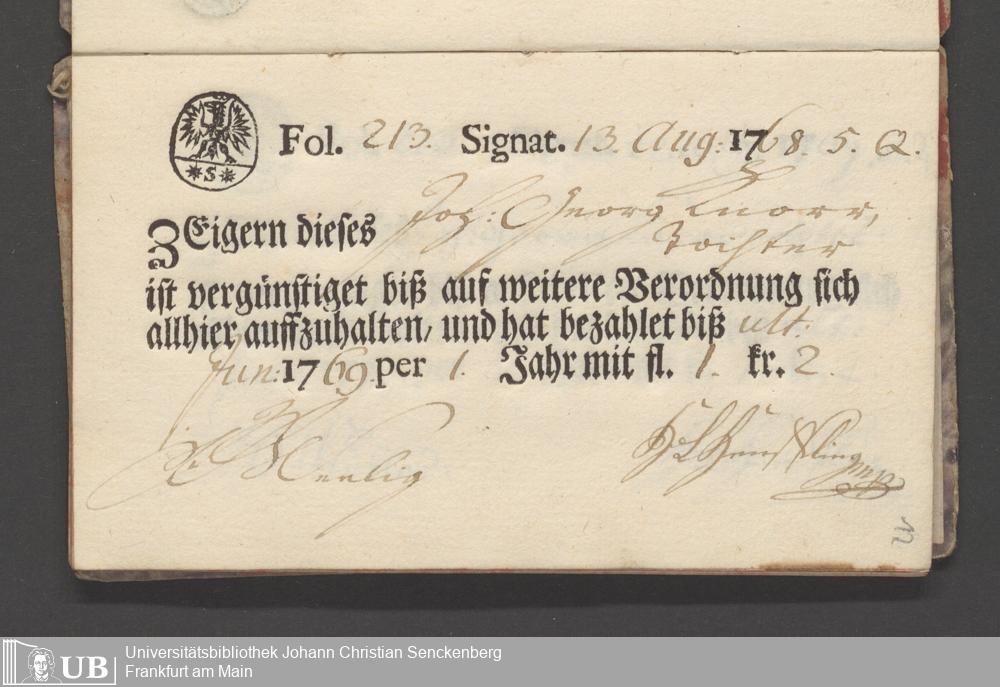 Fol. 213. Signat. 13. Aug: 1768. 5. Q.
*S*
ZEigern dieses Joh: Georg Knorr,
Tochter
ist vergünstiget biß auf weitere Verordnung sich
allhier auffzuhalten, und hat bezahlet biß ult.
Jun: 1769 per 1. Jahr mit fl. 1. kr. 2.
12
UB
Universitätsbibliothek Johann Christian Senckenberg
Frankfurt am Main